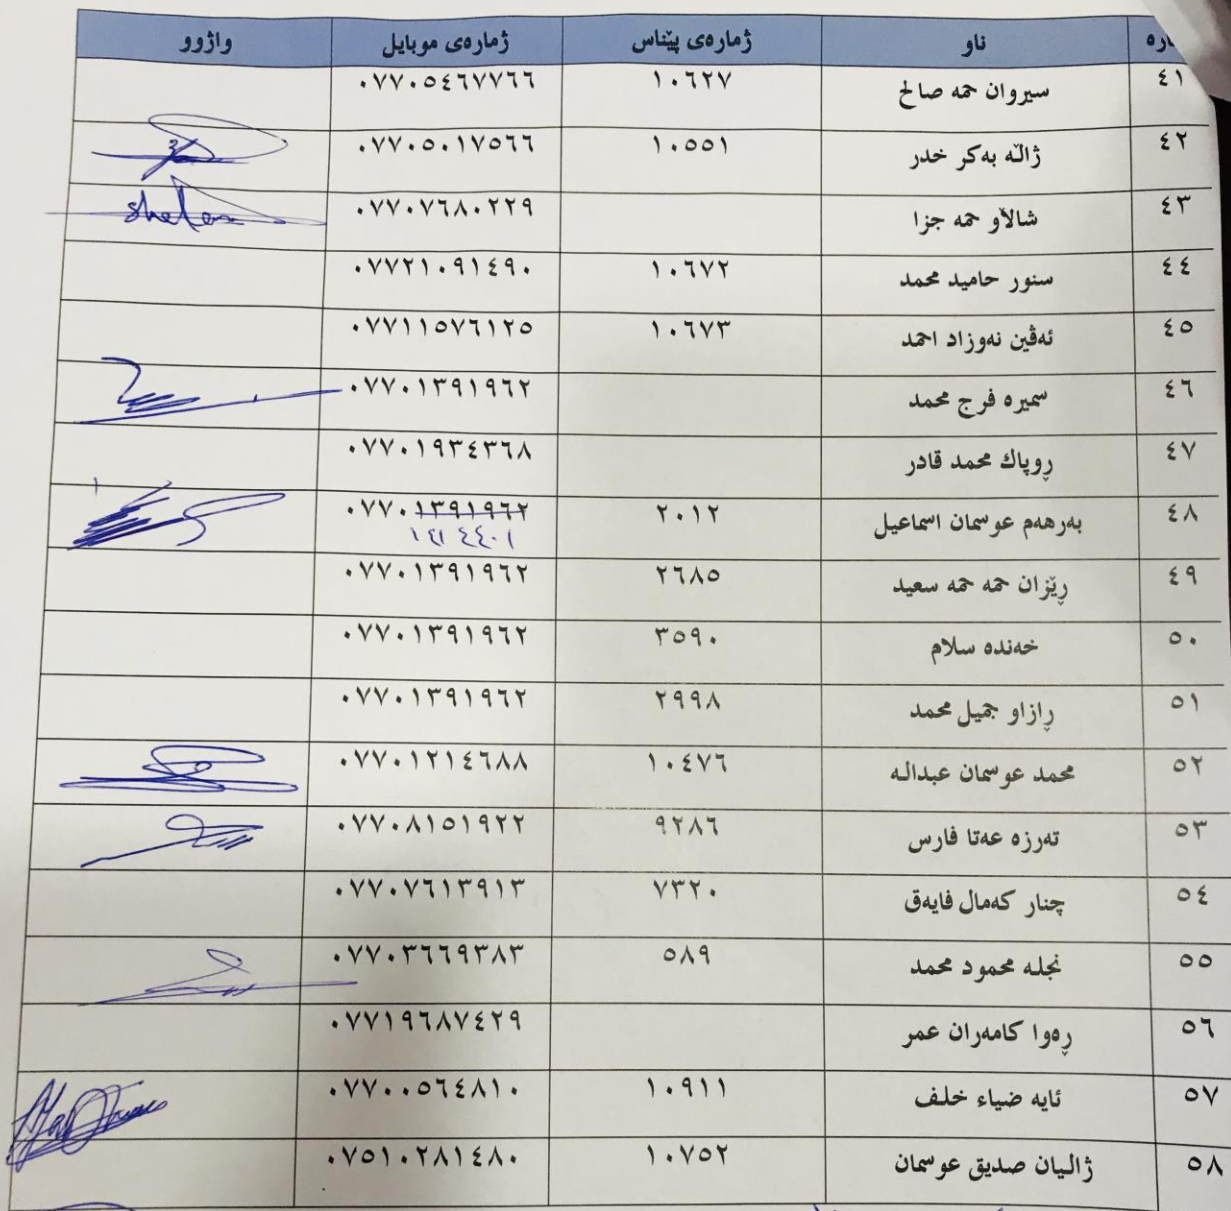 ناو ژمارەی پێناس ژمارەی موبایل واژوو
٤١ سیروان حمه صالح ١٠٦٢٧ ٠٧٧٠٥٤٦٧٧٦٦
٤٢ ژاڵه بەکر خدر ١٠٥٥١ ٠٧٧٠٥٠١٧٥٦٦
٤٣ شاڵاو حمه جزا ٠٧٧٠٧٦٨٠٢٢٩
٤٤ سنور حامید محمد ١٠٦٧٢ ٠٧٧٢١٠٩١٤٩٠
٤٥ ئەڤین نەوزاد احمد ١٠٦٧٣ ٠٧٧١١٥٧٦١٢٥
٤٦ سمیره فرج محمد ٠٧٧٠١٣٩١٩٦٢
٤٧ ڕوپاك محمد قادر ٠٧٧٠١٩٣٤٣٦٨
٤٨ بەرهەم عوسمان اسماعیل ٢٠١٢ ٠٧٧٠١٣٩١٩٦٢
١٤١٤٤٠١
٤٩ ڕێزان حمه حمه سعید ٢٦٨٥ ٠٧٧٠١٣٩١٩٦٢
٥٠ خەنده سلام ٣٥٩٠ ٠٧٧٠١٣٩١٩٦٢
٥١ ڕازاو جمیل محمد ٢٩٩٨ ٠٧٧٠١٣٩١٩٦٢
٥٢ محمد عوسمان عبداله ١٠٤٧٦ ٠٧٧٠١٢١٤٦٨٨
٥٣ تەرزه عەتا فارس ٩٢٨٦ ٠٧٧٠٨١٥١٩٢٢
٥٤ چنار کەمال فایەق ٧٣٢٠ ٠٧٧٠٧٦١٣٩١٣
٥٥ نجله محمود محمد ٥٨٩ ٠٧٧٠٣٦٦٩٣٨٣
٥٦ ڕەوا کامەران عمر ٠٧٧١٩٦٨٧٤٢٩
٥٧ ئایه ضیاء خلف ١٠٩١١ ٠٧٧٠٠٥٦٤٨١٠
٥٨ ژالیان صدیق عوسمان ١٠٧٥٢ ٠٧٥١٠٢٨١٤٨٠